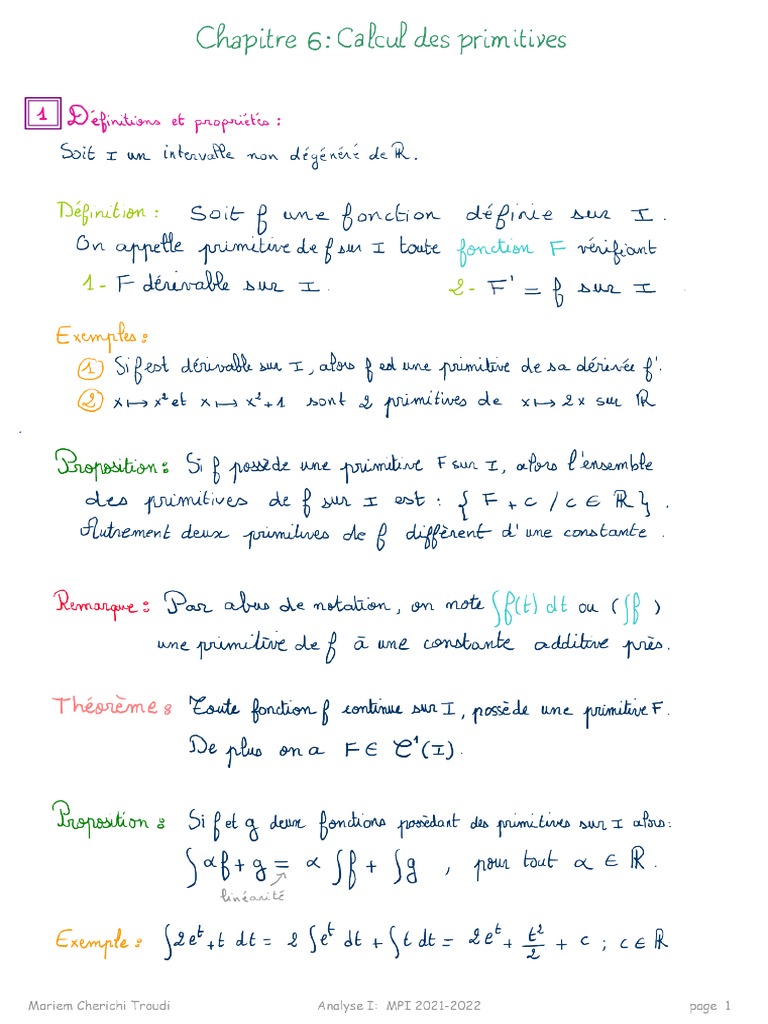 Chapitre 6: Calcul des primitives
1 Définitions et propriétés :
Soit I un intervalle non dégénéré de ℝ.
Définition : Soit f une fonction définie sur I.
On appelle primitive de f sur I toute fonction F vérifiant
1- F dérivable sur I. 2- F' = f sur I
Exemples :
① Si f est dérivable sur I, alors f est une primitive de sa dérivée f'.
② x ↦ x² et x ↦ x²+1 sont 2 primitives de x ↦ 2x sur ℝ
Proposition : Si f possède une primitive F sur I, alors l'ensemble
des primitives de f sur I est : { F + c / c ∈ ℝ }.
Autrement deux primitives de f diffèrent d'une constante.
Remarque : Par abus de notation, on note ∫f(t) dt ou (∫f )
une primitive de f à une constante additive près.
Théorème : Toute fonction f continue sur I, possède une primitive F.
De plus on a F ∈ 𝒞¹(I).
Proposition : Si f et g deux fonctions possédant des primitives sur I alors :
∫ αf + g = α ∫f + ∫g , pour tout α ∈ ℝ.
linéarité
Exemple : ∫2eᵗ + t dt = 2 ∫eᵗ dt + ∫t dt = 2eᵗ + t²/2 + c ; c ∈ ℝ
Mariem Cherichi Troudi Analyse I: MPI 2021-2022 page 1